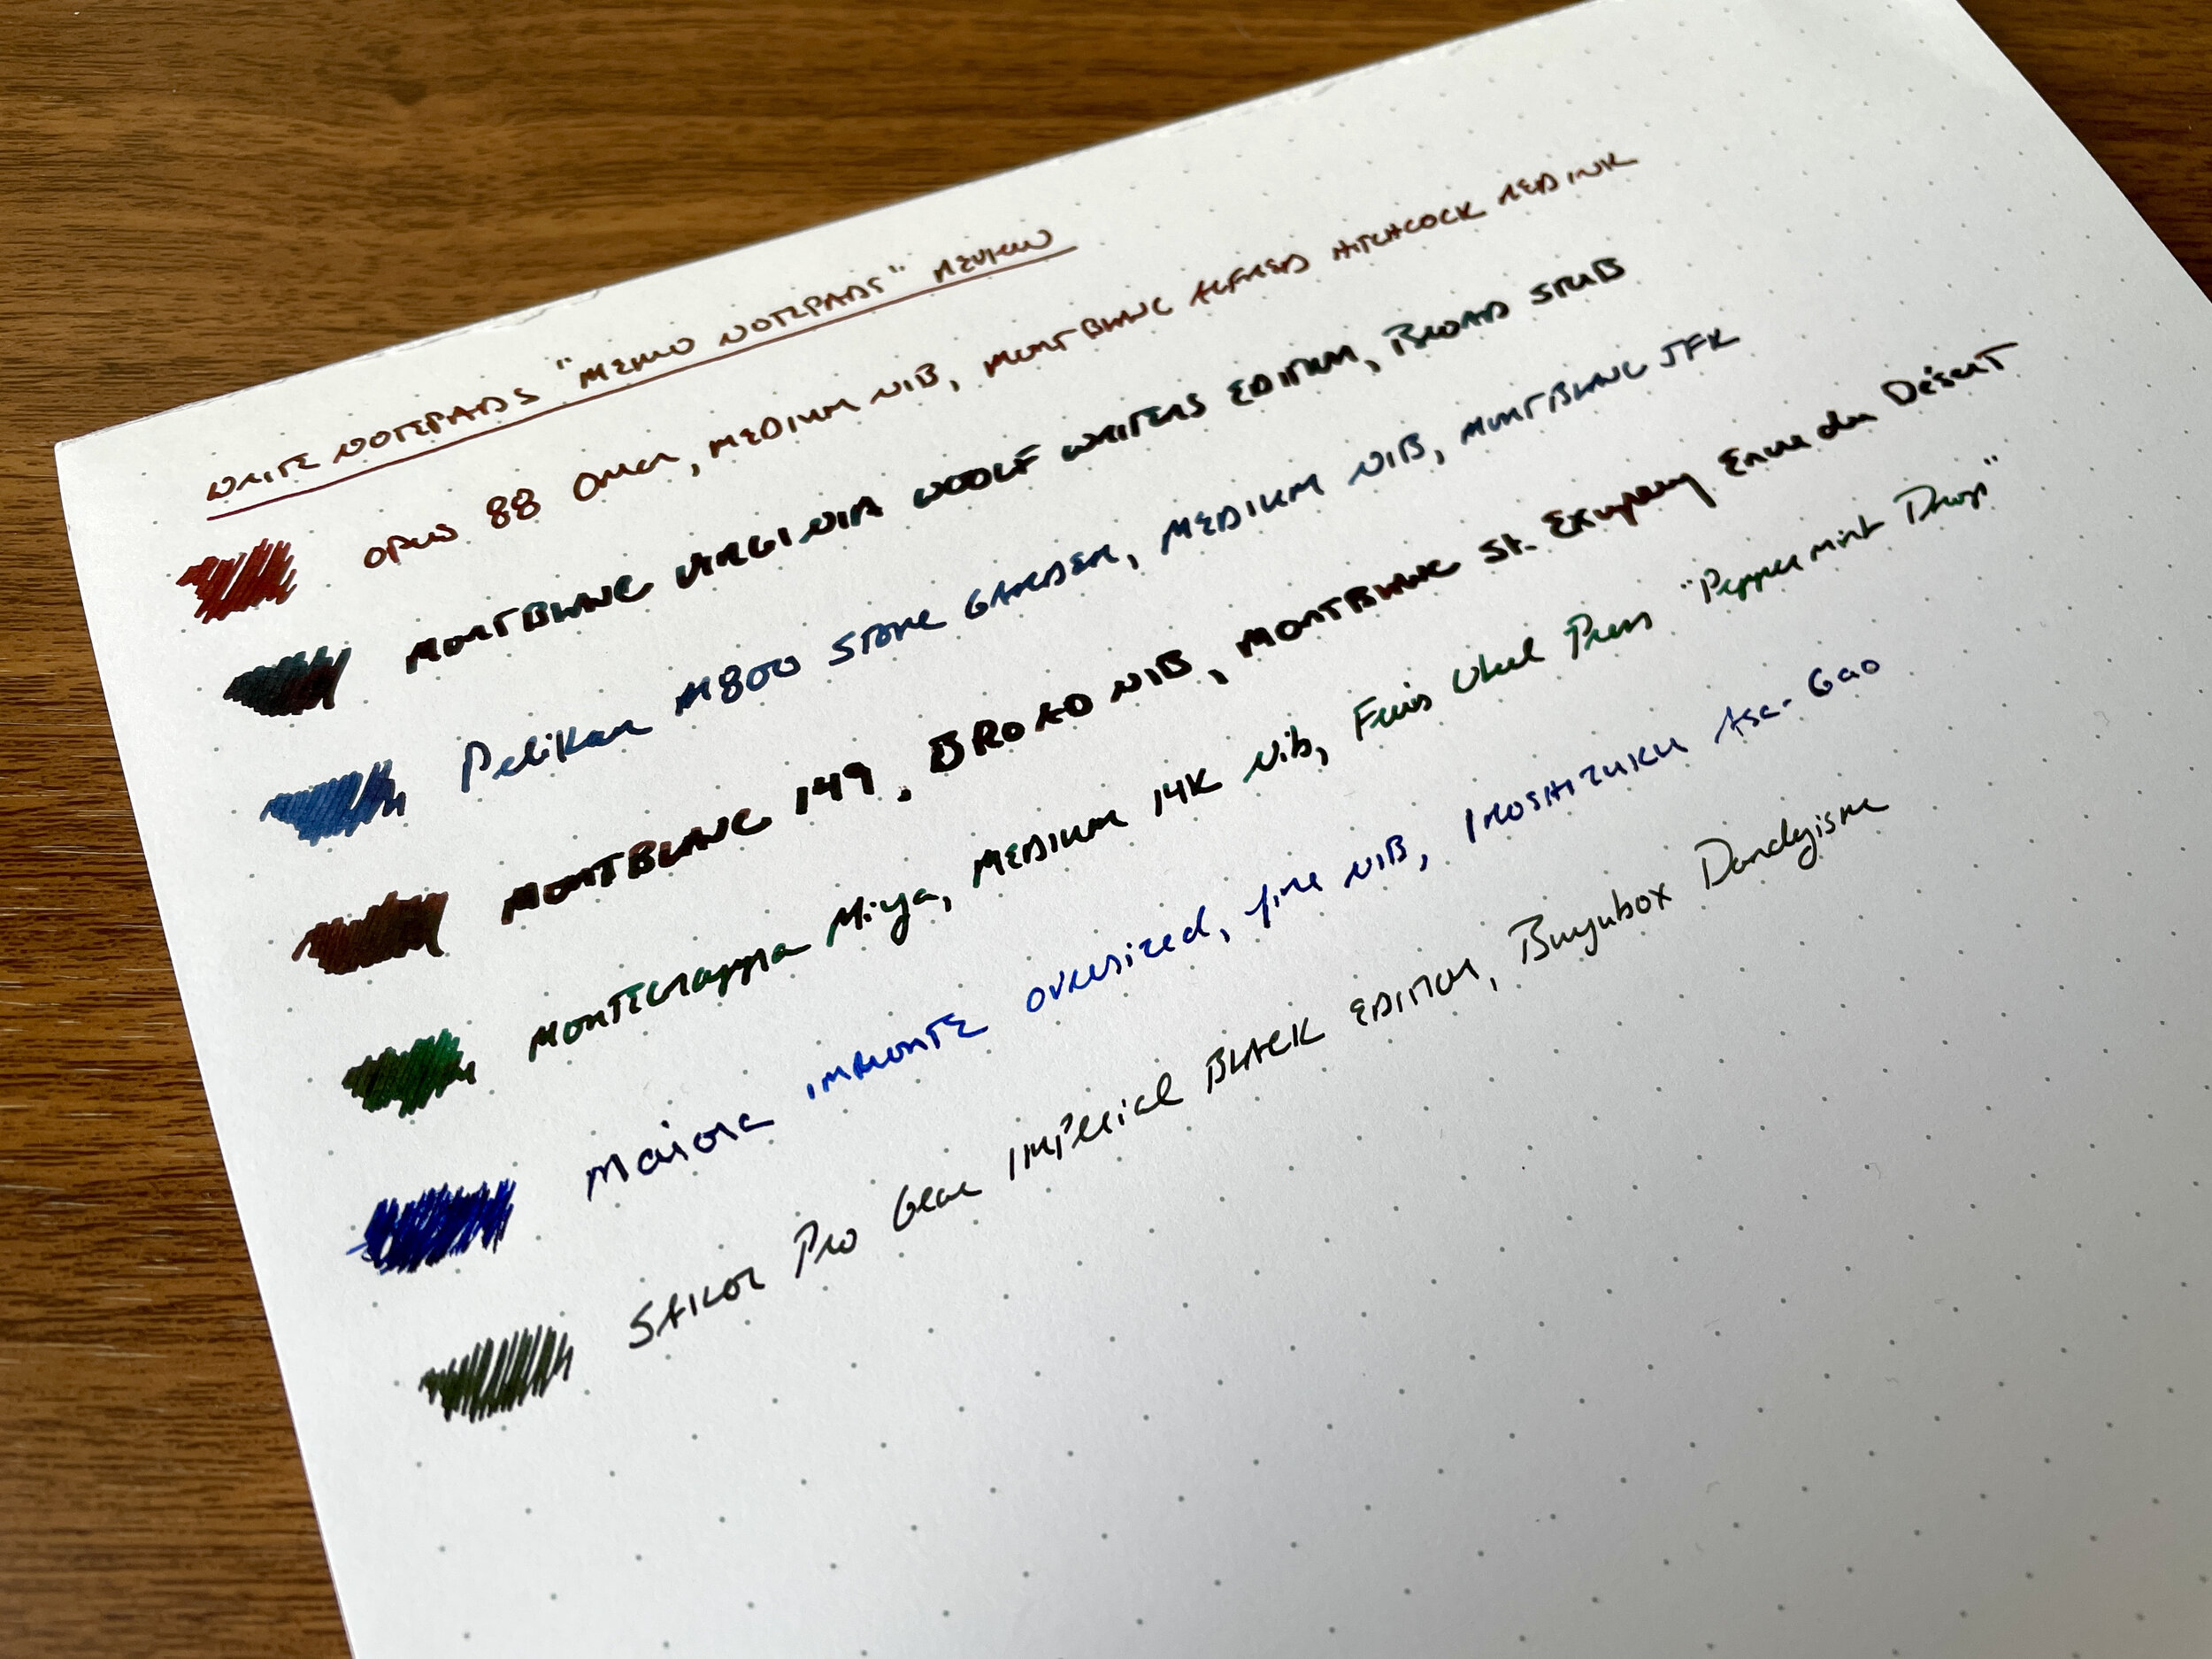 WRITE NOTEPADS "MEMO NOTEPADS" REVIEW
OPUS 88 OMAR, MEDIUM NIB, MONTBLANC ALFRED HITCHCOCK RED INK
MONTBLANC VIRGINIA WOOLF WRITERS EDITION, BROAD STUB
Pelikan M800 STONE GARDEN, MEDIUM NIB, MONTBLANC JFK
MONTBLANC 149, BROAD NIB, MONTBLANC St. Exupery Encre du Désert
MONTEGRAPPA Miya, MEDIUM 14K Nib, Ferris Wheel Press "Peppermint Drop"
Maiora IMPRONTE oversized, fine NIB, IROSHIZUKU Asa-Gao
SAILOR Pro Gear Imperial BLACK EDITION, Bungubox Dandyism